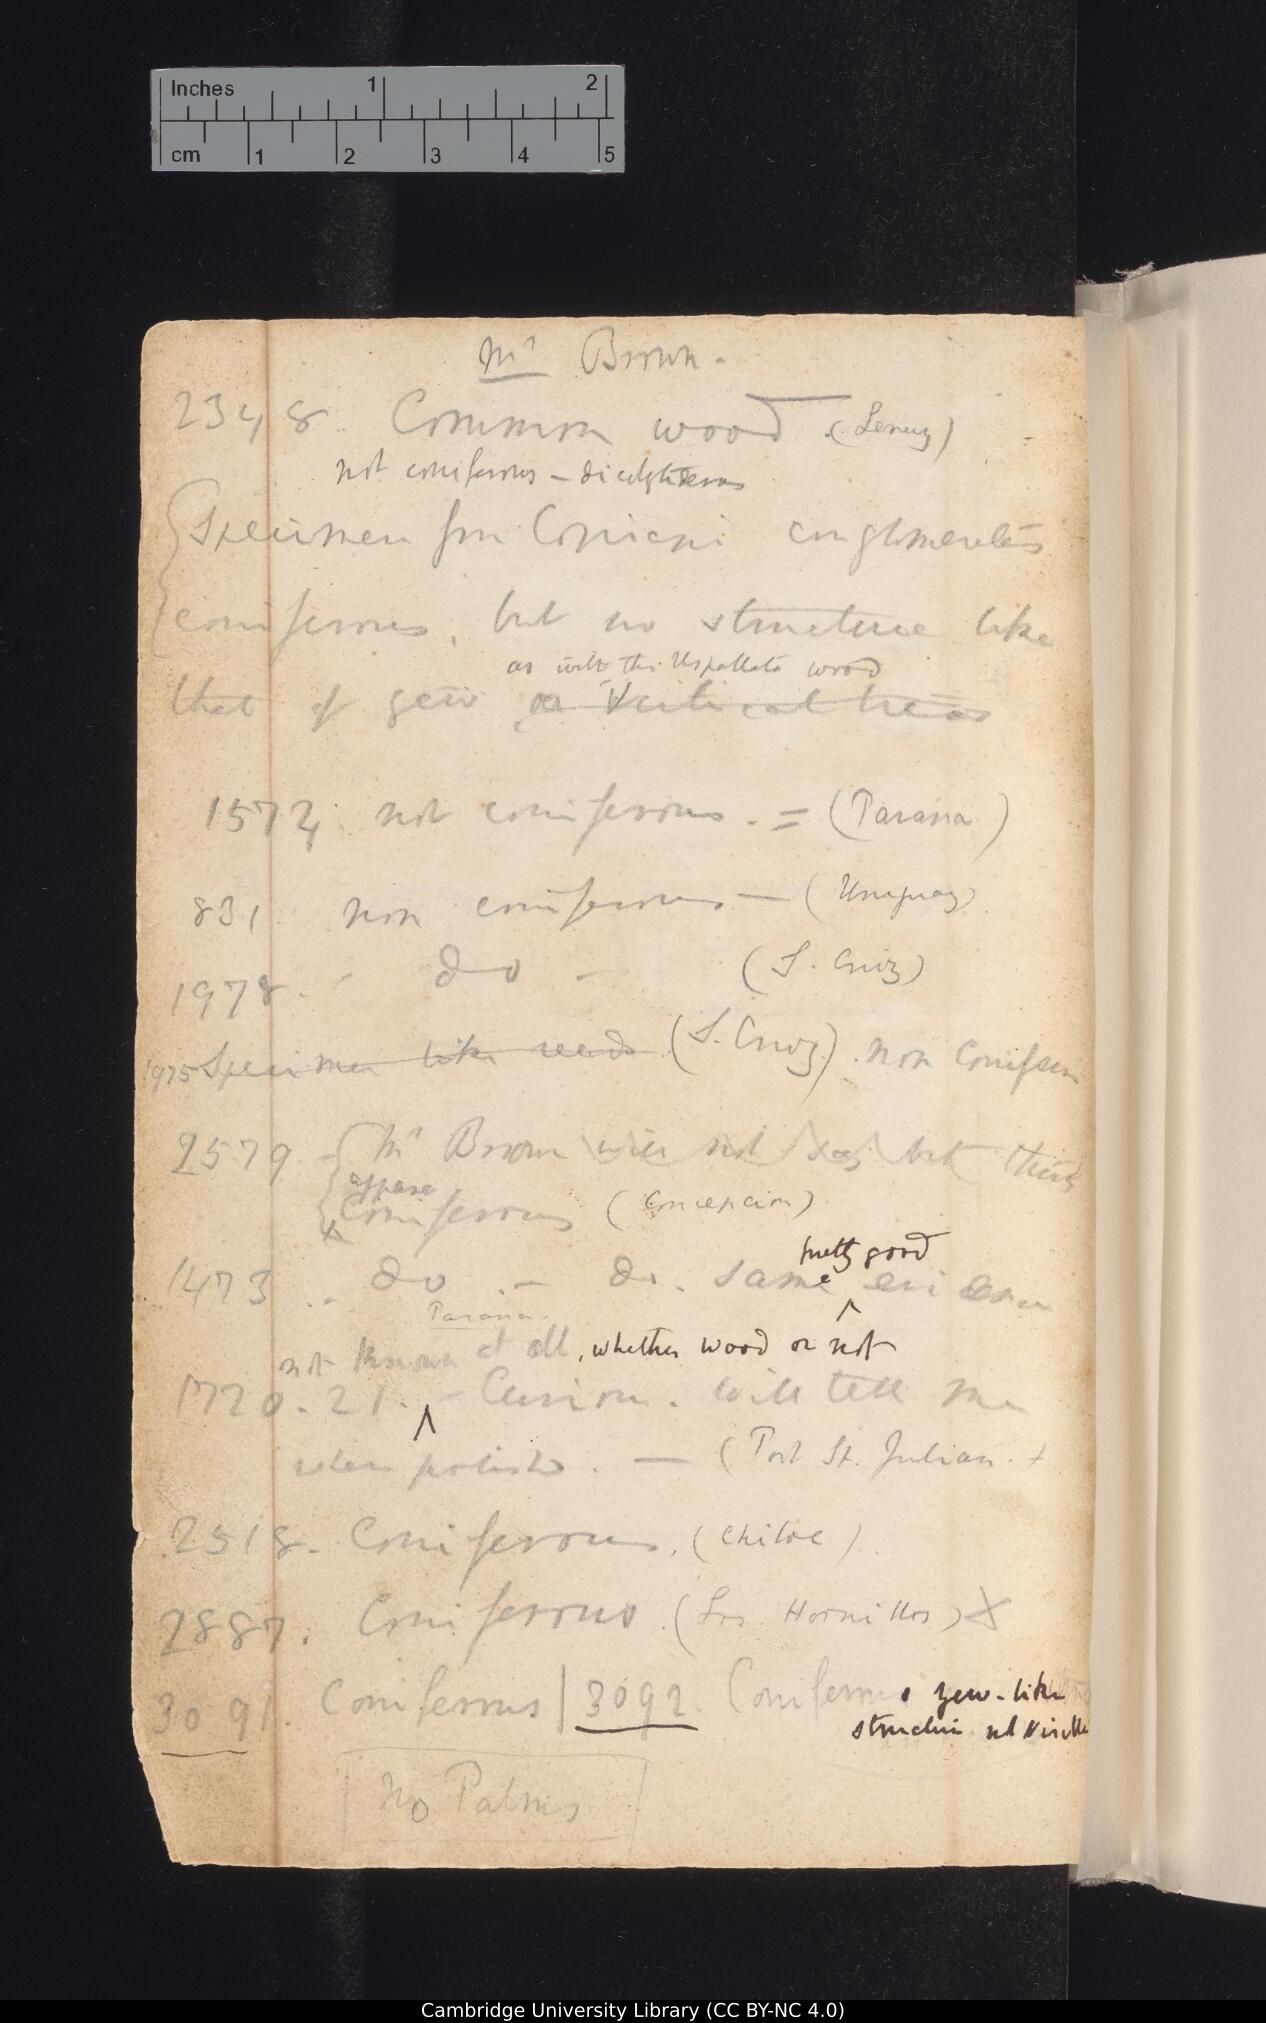 Inches 1 2
cm 1 2 3 4 5
Mr Brown.
2348. Common wood. (Lemuy)
not coniferous – dicotyledenous
Specimen from Copiapò conglomerates
coniferous, but no structure like
as with the Uspallata wood
that of yew or Vertical trees
1572 not coniferous. = (Parana)
831. non coniferous — (Uruguay)
1978. do – (S. Cruz)
1975 Specimen like reeds (S. Cruz). non Conifer
2579 – Mr Brown will not say but thinks
appear
Coniferous (Concepcion)
pretty good
1473 .. do . – do. same evidence
Parana.
not known at all, whether wood or not
1720. 21. – Curious. will tell me
when polished. — (Port St. Julian. +
2518. Coniferous. (Chiloe)
2887. Coniferous. (Los Hornillos) X
3091. Coniferous | 3092. Coniferous yew-like
structure not
No Palms
Cambridge University Library (CC BY-NC 4.0)